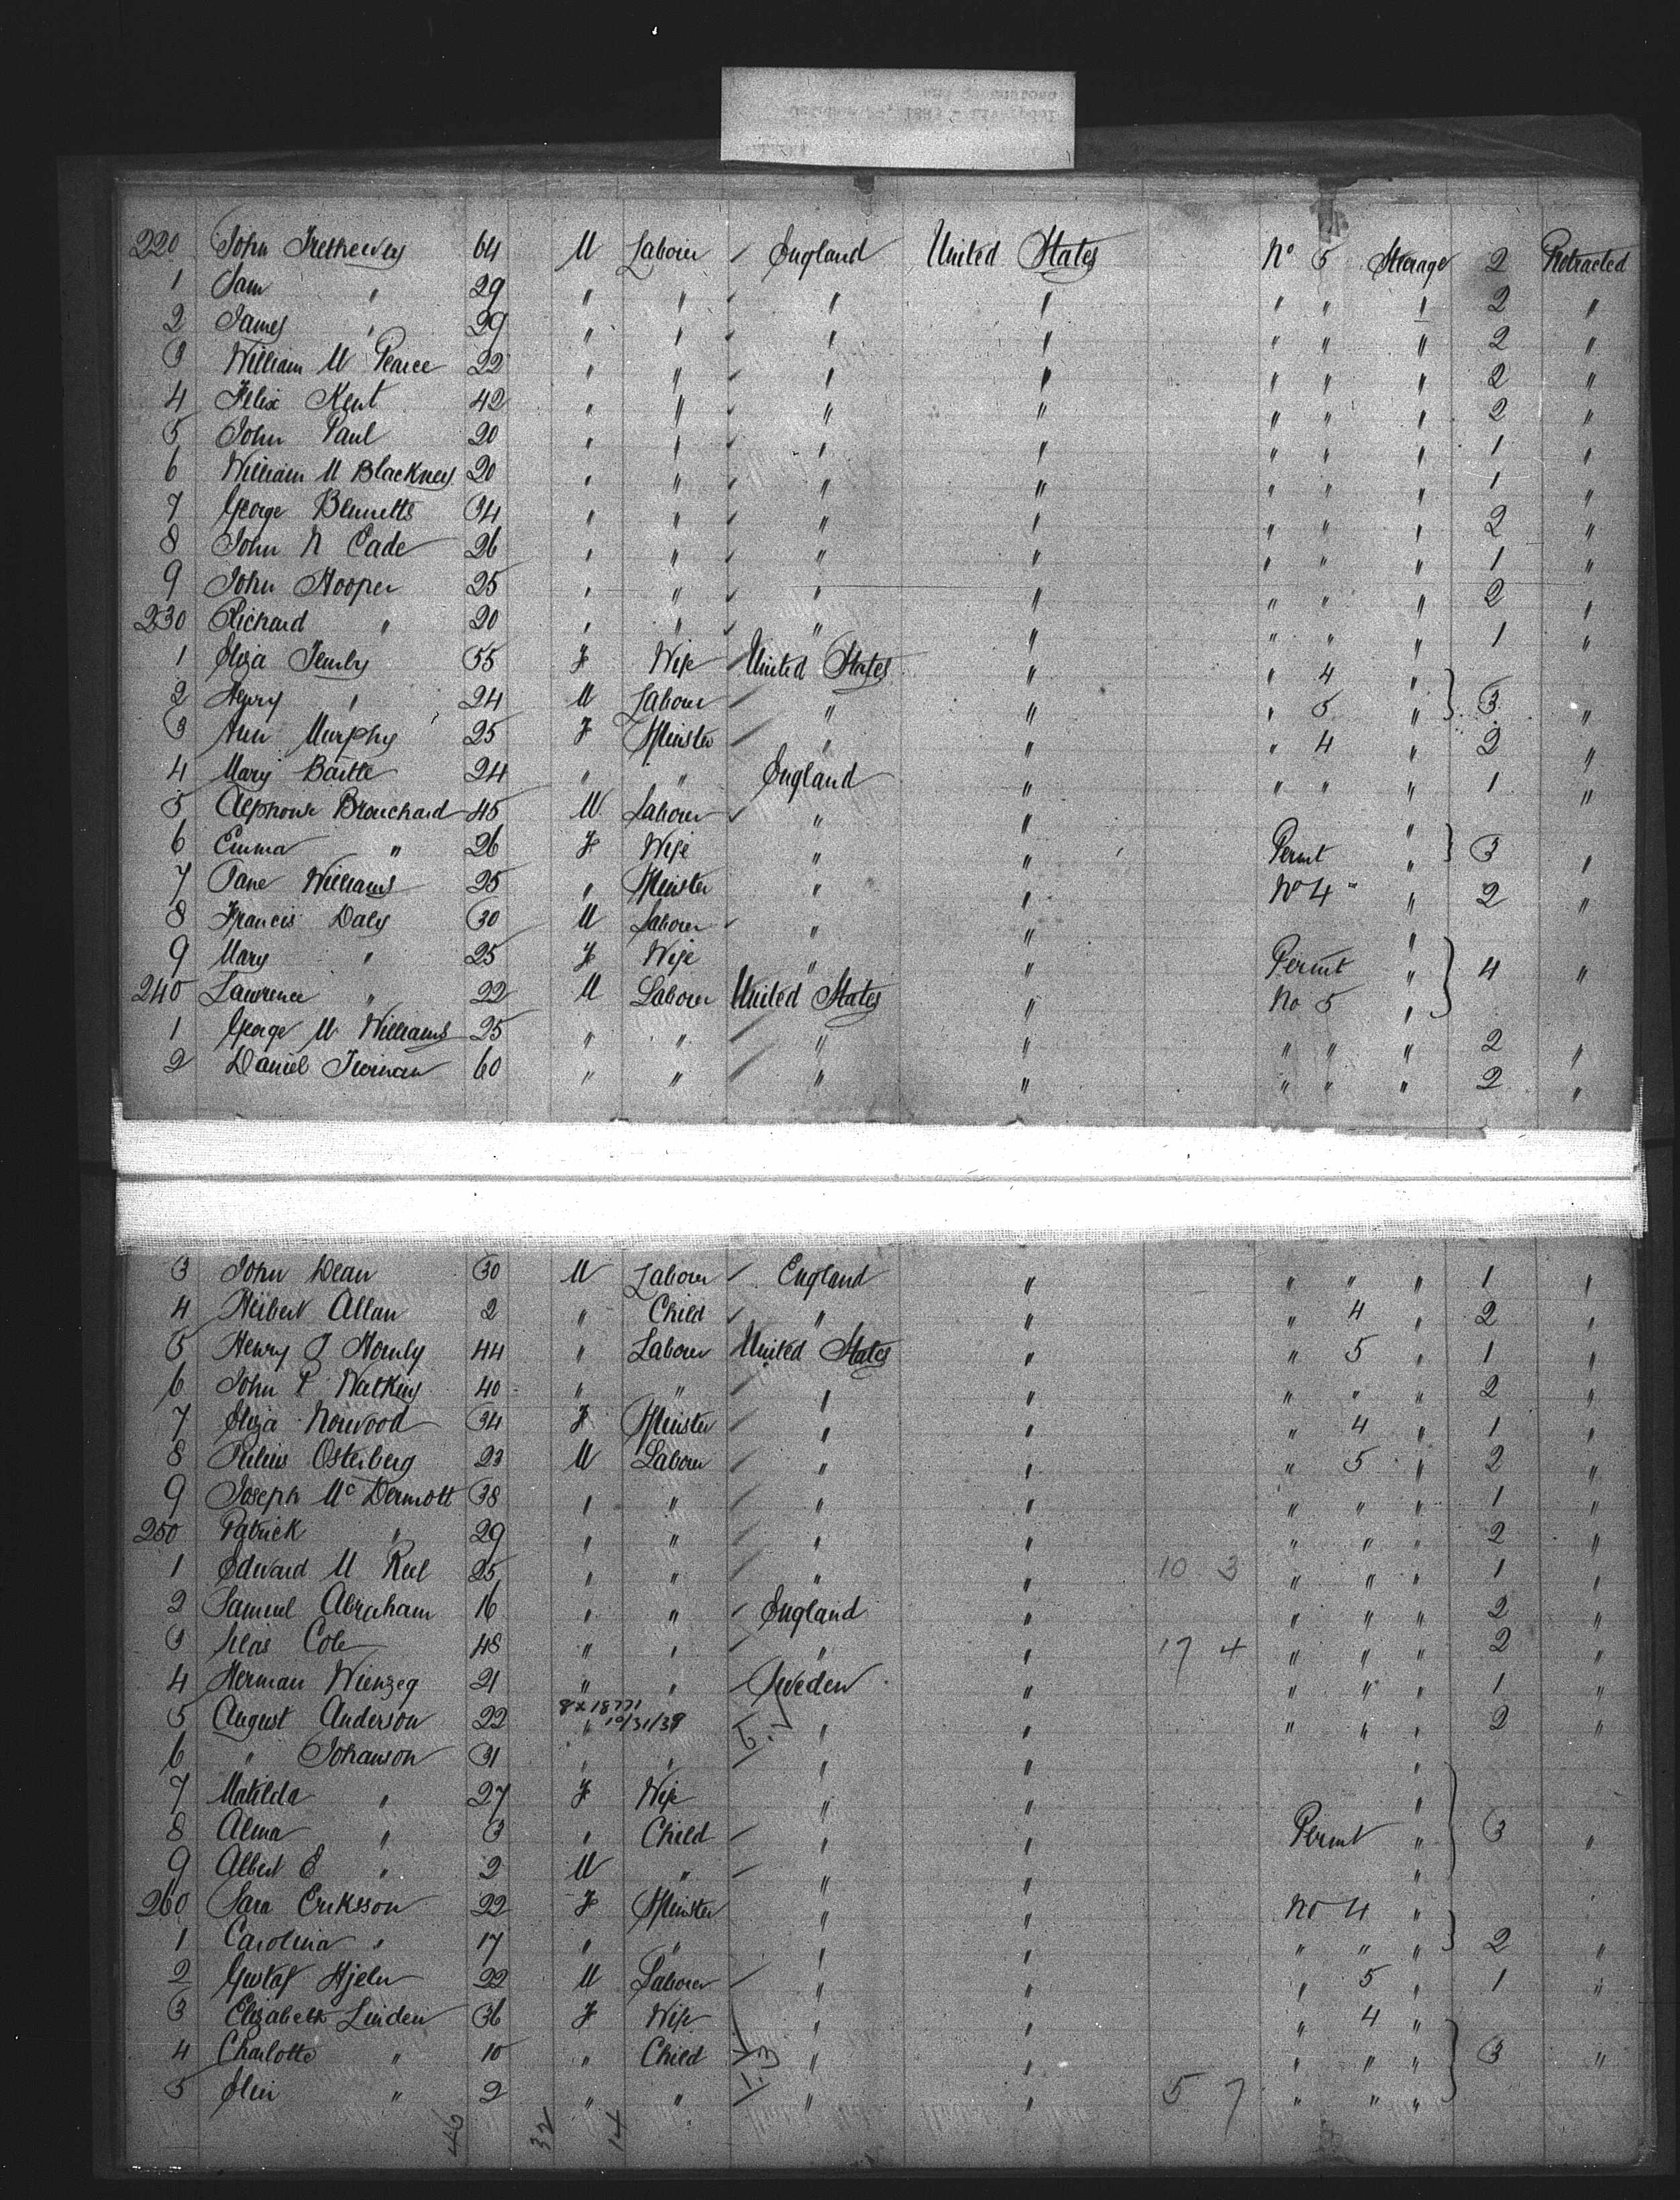 220 John Trethewey 64 M Laborer ✓ England United States No 5 Steerage 2 Protracted
1 Sam " 29 " " ✓ " " " " " 2 "
2 James " 29 " " ✓ " " " " " 2 "
3 William M Pearce 22 " " ✓ " " " " " 2 "
4 Felix Kent 42 " " ✓ " " " " " 2 "
5 John Paul 20 " " ✓ " " " " " 1 "
6 William M Blackney 20 " " ✓ " " " " " 1 "
7 George Bennetts 34 " " ✓ " " " " " 2 "
8 John N Eade 26 " " ✓ " " " " " 1 "
9 John Hooper 25 " " ✓ " " " " " 2 "
230 Richard " 20 " " ✓ " " " " " 1 "
1 Eliza 55 F Wife United States " " 4 "
2 Henry " 24 M Laborer " " " 5 " 3 "
3 Ann Murphy 25 F Spinster " " " 4 " 2 "
4 Mary 24 " " England " " " " 1 "
5 Alphonse Brouchard 45 M Laborer ✓ " " "
6 Emma " 26 F Wife " " Permit " 3 "
7 Jane Williams 25 " Spinster " " No 4 " 2 "
8 Francis Daly 30 M Laborer " " "
9 Mary " 25 F Wife " " Permit " 4 "
240 Lawrence " 22 M Laborer United States " No 5 "
1 George M Williams 25 " " " " " " " 2 "
2 Daniel 60 " " " " " " " 2 "
3 John Dean 30 M Laborer ✓ England " " " " 1 "
4 Herbert Allan 2 " Child ✓ " " " 4 " 2 "
5 Henry J Hornly 44 " Laborer United States " " 5 " 1 "
6 John P Watkins 40 " " " " " " " 2 "
7 Eliza Norwood 34 F Spinster " " " 4 " 1 "
8 Julius Osterberg 23 M Laborer " " " 5 " 2 "
9 Joseph McDermott 38 " " " " " " " 1 "
250 Patrick " 29 " " " " " " " 2 "
1 Edward M Reel 25 " " " " 10 3 " " " 1 "
2 Samuel Abraham 16 " " ✓ England " " " " 2 "
3 Silas Cole 48 " " " " 17 4 " " " 2 "
4 Herman 21 " " Sweden " " " " 1 "
8x18771
5 August Anderson 22 " 10/31/39 " " " " " 2 "
6 " Johanson 31 " " " " "
7 Matilda " 27 F Wife " " "
8 Alma " 3 " Child " " Permit " 3 "
9 Albert E " 2 M " " " "
260 Sara Eriksson 22 F Spinster " " No 4 "
1 Carolina " 17 " " " " " " " 2 "
2 Gustaf Hjelm 22 M Laborer " " " 5 " 1 "
3 Elizabeth Linden 36 F Wife " " " 4 "
4 Charlotte " 10 " Child " " " " " 3 "
5 Elin " 2 " " " " 5 7 " " "
46 32 14